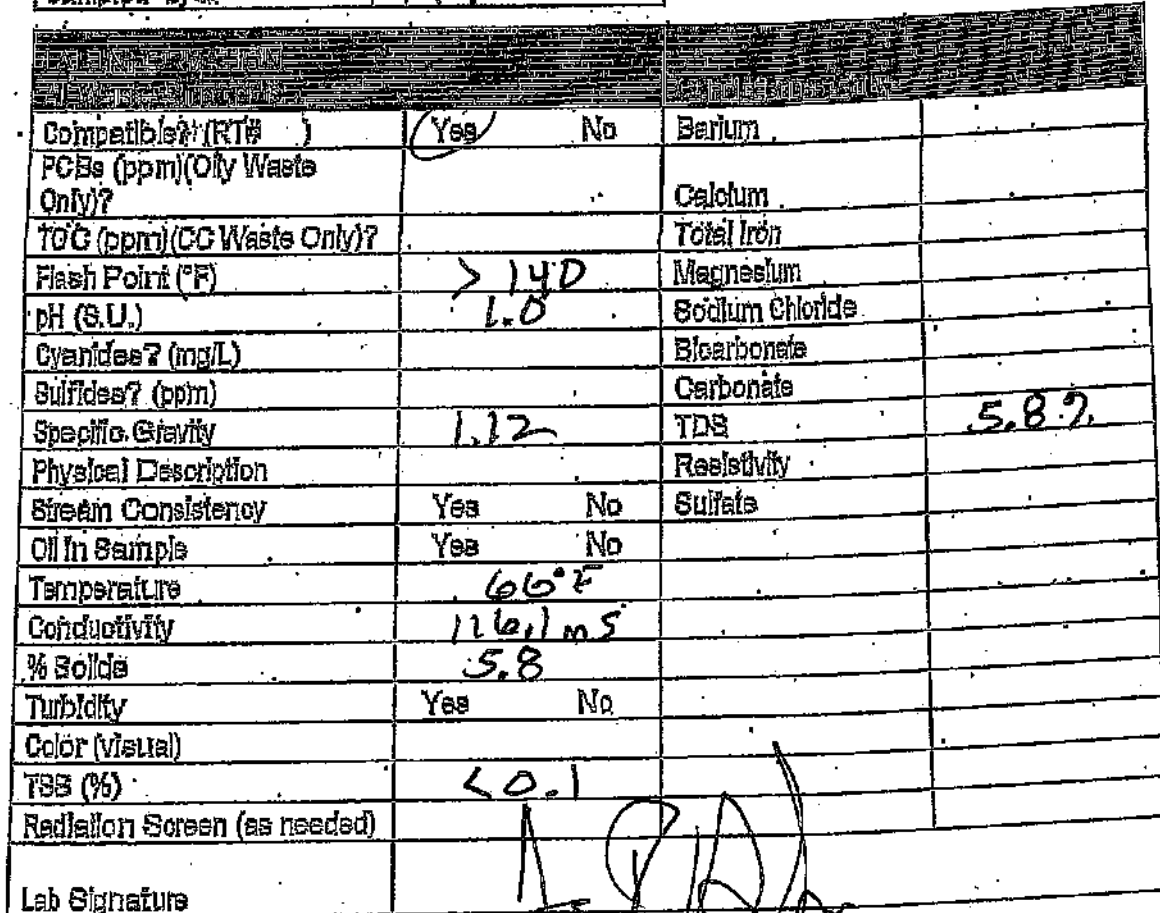 Compatible? (RT# ) Yes No Barium
PCBs (ppm)(Oily Waste
Only)? Calcium
TOC (ppm)(CC Waste Only)? Total Iron
Flash Point (°F) > 140 Magnesium
pH (S.U.) 1.0 Sodium Chloride
Cyanides? (mg/L) Bicarbonate
Sulfides? (ppm) Carbonate
Specific Gravity 1.12 TDS 5.8%
Physical Description Resistivity
Stream Consistency Yes No Sulfate
Oil In Sample Yes No
Temperature 66°F
Conductivity 126.1 mS
% Solids 5.8
Turbidity Yes No
Color (visual)
TSS (%) <0.1
Radiation Screen (as needed)
Lab Signature